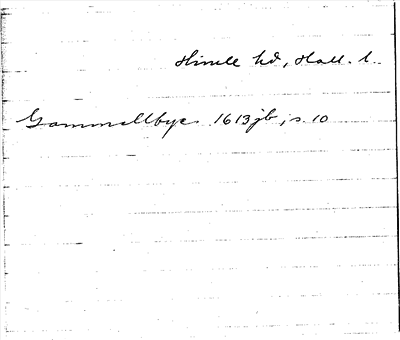 Himle hd, Hall. l.
Gammellbye 1613 jb, s. 10